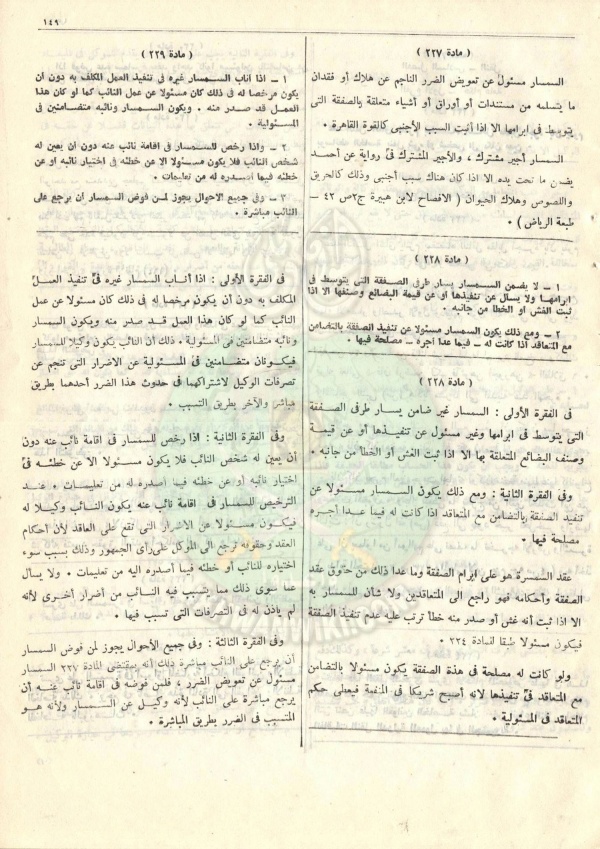 ١٤٩
( مادة ٢٢٧ )
السمسار مسئول عن تعويض الضرر الناجم عن هلاك أو فقدان
ما يتسلمه من مستندات أو أوراق أو أشياء متعلقة بالصفقة التى
يتوسط فى ابرامها الا اذا أثبت السبب الأجنبى كالقوة القاهرة .
السمسار أجير مشترك ، والأجير المشترك فى رواية عن أحمد
يضمن ما تحت يده الا اذا كان هناك سبب أجنبى وذلك كالحريق
واللصوص وهلاك الحيوان ( الافصاح لابن هبيرة ج٢ص ٤٢ –
طبعة الرياض ) .
( مادة ٢٢٨ )
١ – لا يضمن السمسار يسار طرفى الصفقة التى يتوسط فى
ابرامها ولا يسأل عن تنفيذها أو عن قيمة البضائع وصنفها الا اذا
ثبت الغش أو الخطأ من جانبه .
٢ – ومع ذلك يكون السمسار مسئولا عن تنفيذ الصفقة بالتضامن
مع المتعاقد اذا كانت له – فيما عدا اجره – مصلحة فيها .
( مادة ٢٢٨ )
فى الفقرة الأولى : السمسار غير ضامن يسار طرفى الصفقة
التى يتوسط فى ابرامها وغير مسئول عن تنفيذها أو عن قيمة
وصنف البضائع المتعلقة بها الا اذا ثبت الغش أو الخطأ من جانبه .
وفى الفقرة الثانية : ومع ذلك يكون السمسار مسئولا عن
تنفيذ الصفقة بالتضامن مع المتعاقد اذا كانت له فيما عدا أجره
مصلحة فيها .
عقد السمسرة هو على ابرام الصفقة وما عدا ذلك من حقوق عقد
الصفقة وأحكامه فهو راجع الى المتعاقدين ولا شأن للسمسار به
الا اذا ثبت أنه غش أو صدر منه خطأ ترتب عليه عدم تنفيذ الصفقة
فيكون مسئولا طبقا للمادة ٢٢٤
ولو كانت له مصلحة فى هذة الصفقة يكون مسئولا بالتضامن
مع المتعاقد فى تنفيذها لانه أصبح شريكا فى المنفعة فيعطى حكم
المتعاقد فى المسئولية .
( مادة ٢٢٩ )
١ – اذا اناب السمسار غيره فى تنفيذ العمل المكلف به دون أن
يكون مرخصا له فى ذلك كان مسئولا عن عمل النائب كما لو كان هذا
العمل قد صدر منه . ويكون السمسار ونائبه متضامنين فى
المسئولية .
٢ – واذا رخص للسمسار فى اقامة نائب عنه دون أن يعين له
شخص النائب فلا يكون مسئولا الا عن خطئه فى اختيار نائبه او عن
خطئه فيما أصدره له من تعليمات .
٣ – وفى جميع الاحوال يجوز لمن فوض السمسار ان يرجع على
النائب مباشرة .
فى الفقرة الأولى : اذا أناب السمسار غيره فى تنفيذ العمل
المكلف به دون أن يكون مرخصا له فى ذلك كان مسئولا عن عمل
النائب كما لو كان هذا العمل قد صدر منه ويكون السمسار
ونائبه متضامنين فى المسئولية . ذلك أن النائب يكون وكيلا للسمسار
فيكونان متضامنين فى المسئولية عن الاضرار التى تنجم عن
تصرفات الوكيل لاشتراكهما فى حدوث هذا الضرر أحدهما بطريق
مباشر والآخر بطريق التسبب .
وفى الفقرة الثانية : اذا رخص للسمسار فى اقامة نائب عنه دون
أن يعين له شخص النائب فلا يكون مسئولا الا عن خطئه فى
اختيار نائبه أو عن خطئه فيما أصدره له من تعليمات . عند
الترخيص للسمسار فى اقامة نائب عنه يكون النائب وكيلا له
فيكون مسئولا عن الاضرار التى تقع على العاقد لأن أحكام
العقد وحقوقه ترجع الى الموكل على رأى الجمهور وذلك بسبب سوء
اختياره للنائب أو خطئه فيما أصدره اليه من تعليمات . ولا يسأل
عما سوى ذلك مما يتسبب فيه النائب من أضرار أخرى لأنه
لم يأذن له فى التصرفات التى تسبب فيها .
وفى الفقرة الثالثة : وفى جميع الأحوال يجوز لمن فوض السمسار
أن يرجع على النائب مباشرة ذلك أنه بمقتضى المادة ٢٢٧ السمسار
مسئول عن تعويض الضرر ، فلمن فوضه فى اقامة نائب عنه أن
يرجع مباشرة على النائب لأنه وكيل عن السمسار ولأنه هو
المتسبب فى الضرر بطريق المباشرة .